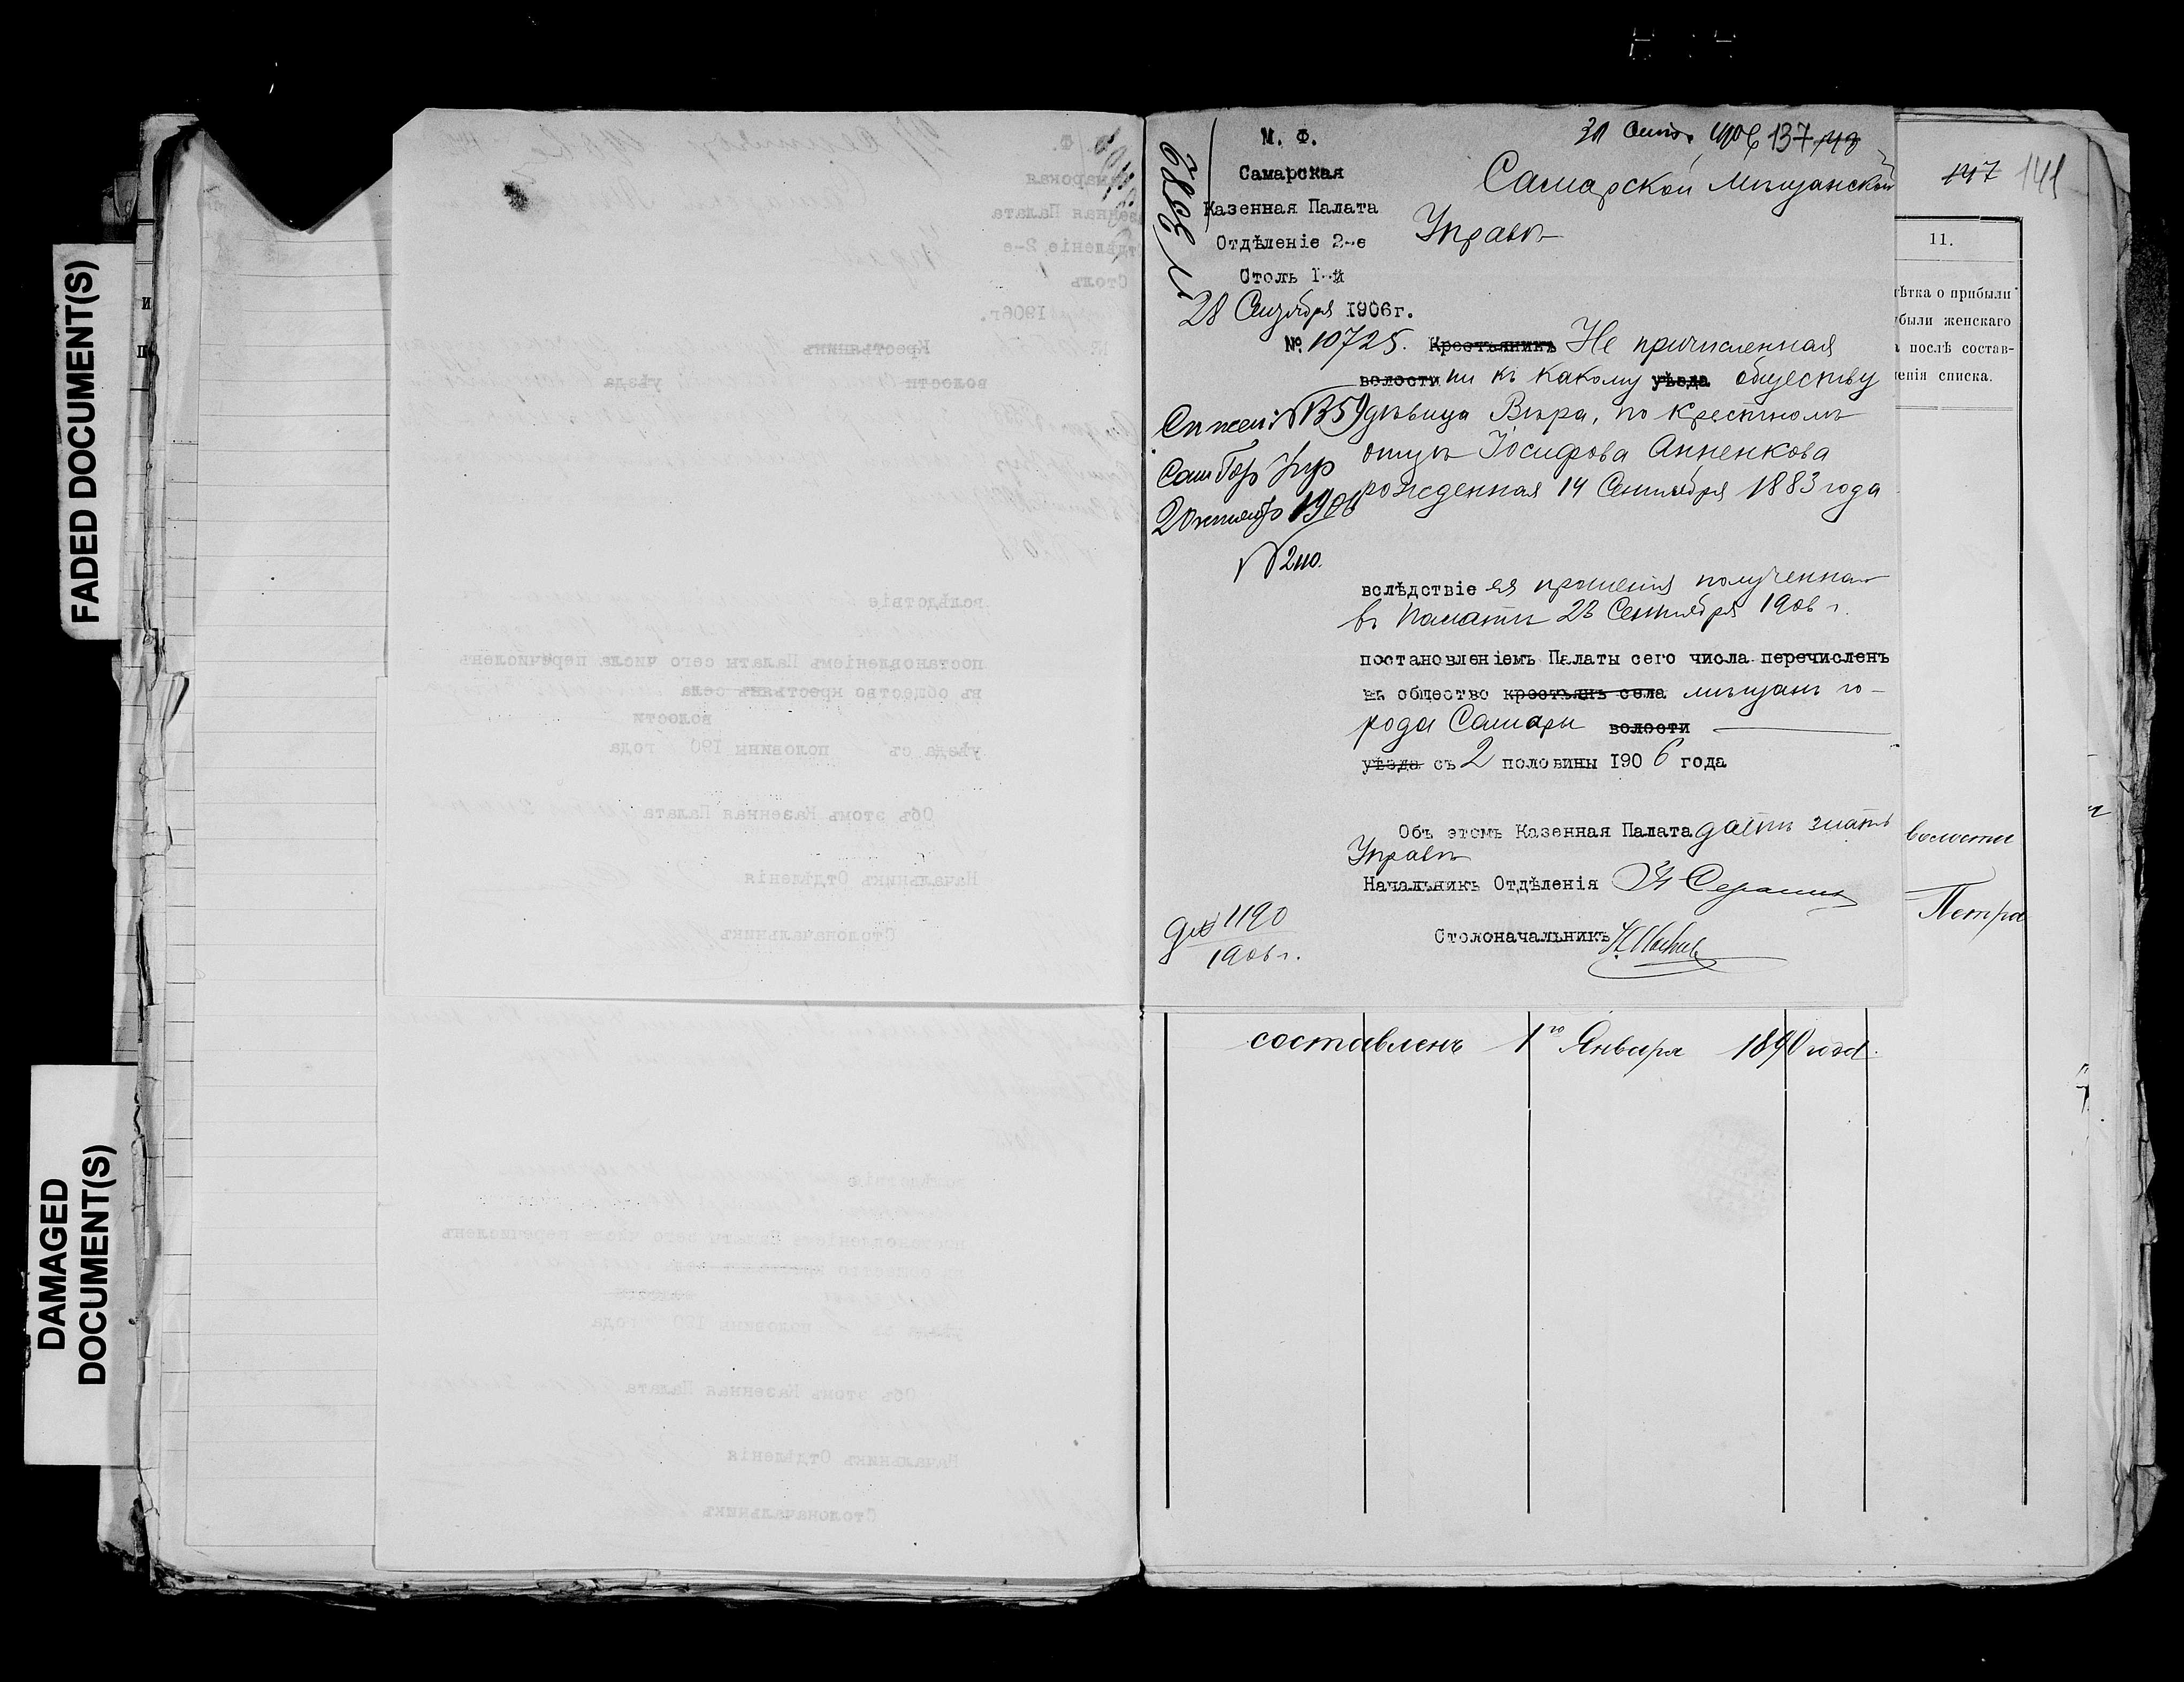 FADED DOCUMENT(S)
DAMAGED
DOCUMENT(S)
М. Ф.
Самарская
Казенная Палата
Отдѣленіе 2-е
Столъ 1-й
28 Сентября 1906г.
№ 10725.
3382
1906 137
Самарской Мѣщанской
Управѣ
Крестьянинъ Не причисленная
волости ни къ какому уѣзда обществу
дѣвица Вѣра, по крестномъ
отцѣ Іосифова Анненкова
рожденная 14 Сентября 1883 года
Сам Гор Упр
2 октябр 1906
№ 2110.
вслѣдствіе ея прошенія полученна
въ Палатѣ 23 Сентября 1906 г.
постановленіемъ Палаты сего числа перечисленъ
въ общество крестьянъ села мѣщанъ го-
рода Самары волости
уѣзда съ 2 половины 1906 года
Объ этомъ Казенная Палата даетъ знать
Управѣ
Начальникъ Отдѣленія
Столоначальникъ
1190
1906 г.
147 141
11.
ѣтка о прибыли
были женскаго
послѣ состав-
енія списка.
волости
Петра
составленъ 1го Января 1890 года.